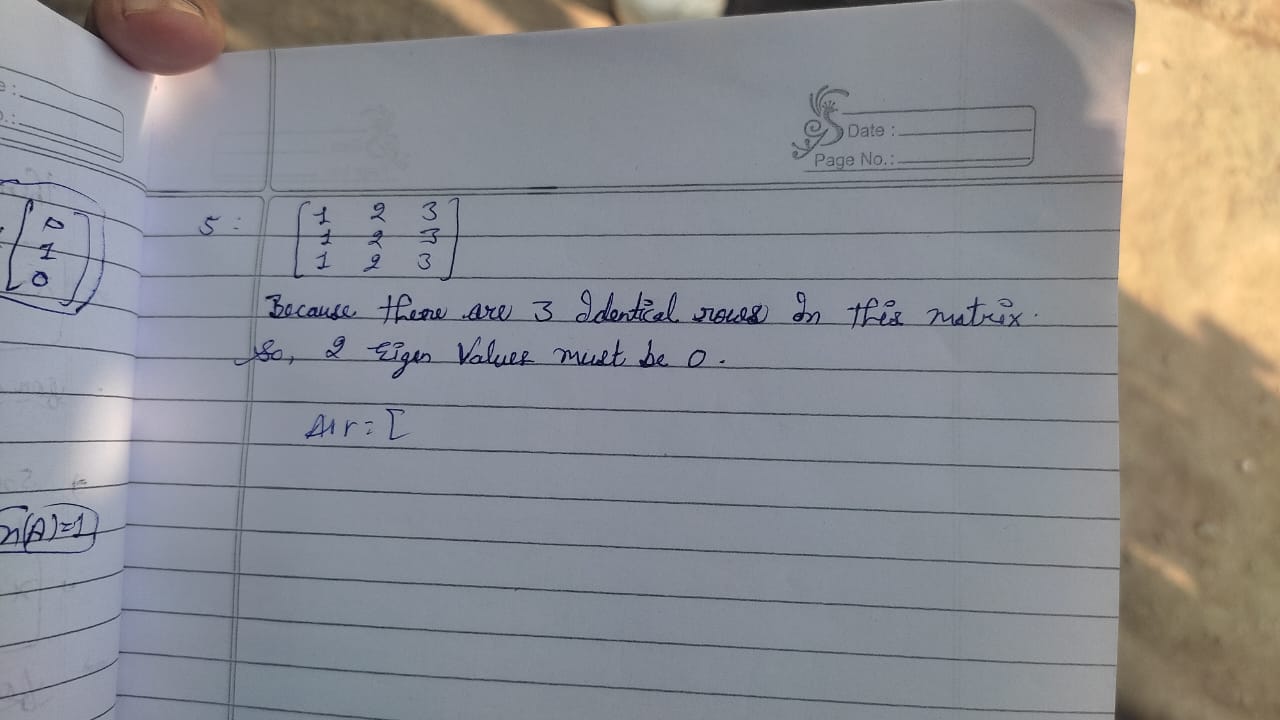 Date :
Page No.:
0
1
0
5 :
1 2 3
1 2 3
1 2 3
Because there are 3 Identical rows In this matrix.
So, 2 Eigen Values must be 0.
n(A)=1